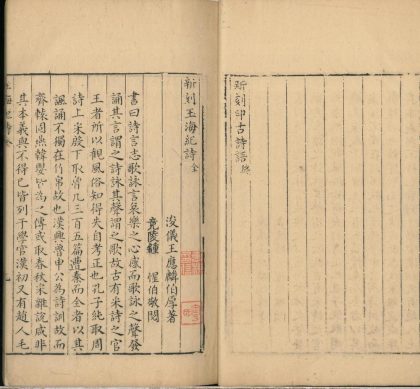 新刻印古詩語終
新刻玉海紀詩 全
浚儀王應麟伯厚著
竟陵鍾 惺伯敬閱
書曰詩言志歌詠言哀樂之心感而歌詠之聲發
誦其言謂之詩詠其聲謂之歌故古有采詩之官
王者所以觀風俗知得失自考正也孔子純取周
詩上采殷下取魯凡三百五篇遭秦而全者以其
諷誦不獨在竹帛故也漢興魯申公為詩訓故而
齊轅固燕韓嬰皆為之傳或取春秋采雜說咸非
其本義與不得已皆列于學官漢初又有趙人毛
玉海紀詩全